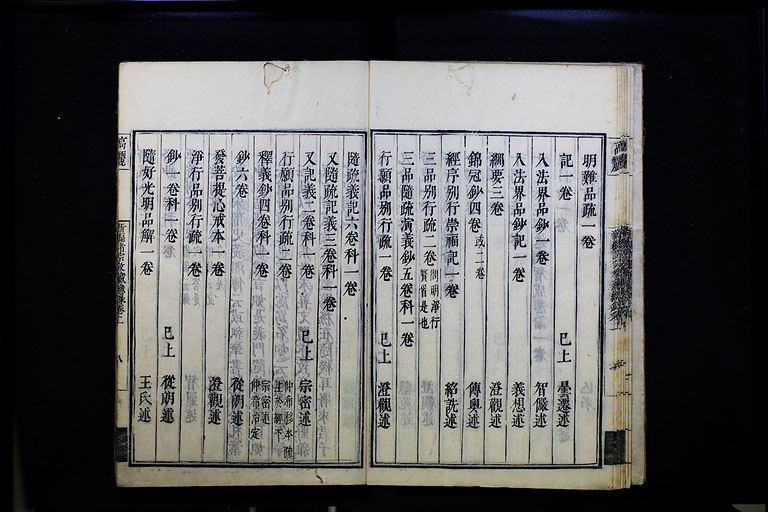 明難品疏一卷
記一卷 已上 曇遷述
入法界品鈔一卷 智儼述
入法界品鈔記一卷 義想述
綱要三卷 澄觀述
錦冠鈔四卷或二卷 傳奧述
經序別行崇福記一卷 紹詵述
三品別行疏二卷問明淨行賢首是也
三品隨疏演義鈔五卷科一卷
行願品別行疏一卷 已上 澄觀述
隨疏義記六卷科一卷
又隨疏記義三卷科一卷
又記義二卷科一卷 已上 宗密述
行願品別行疏二卷 仲希移本疏注於經下
釋義鈔四卷科一卷 宗密述仲希治定
鈔六卷 從朗述
發菩提心戒本一卷 澄觀述
淨行品別行疏一卷
鈔一卷科一卷 已上 從朗述
隨好光明品解一卷 王氏述
高麗
八
高麗